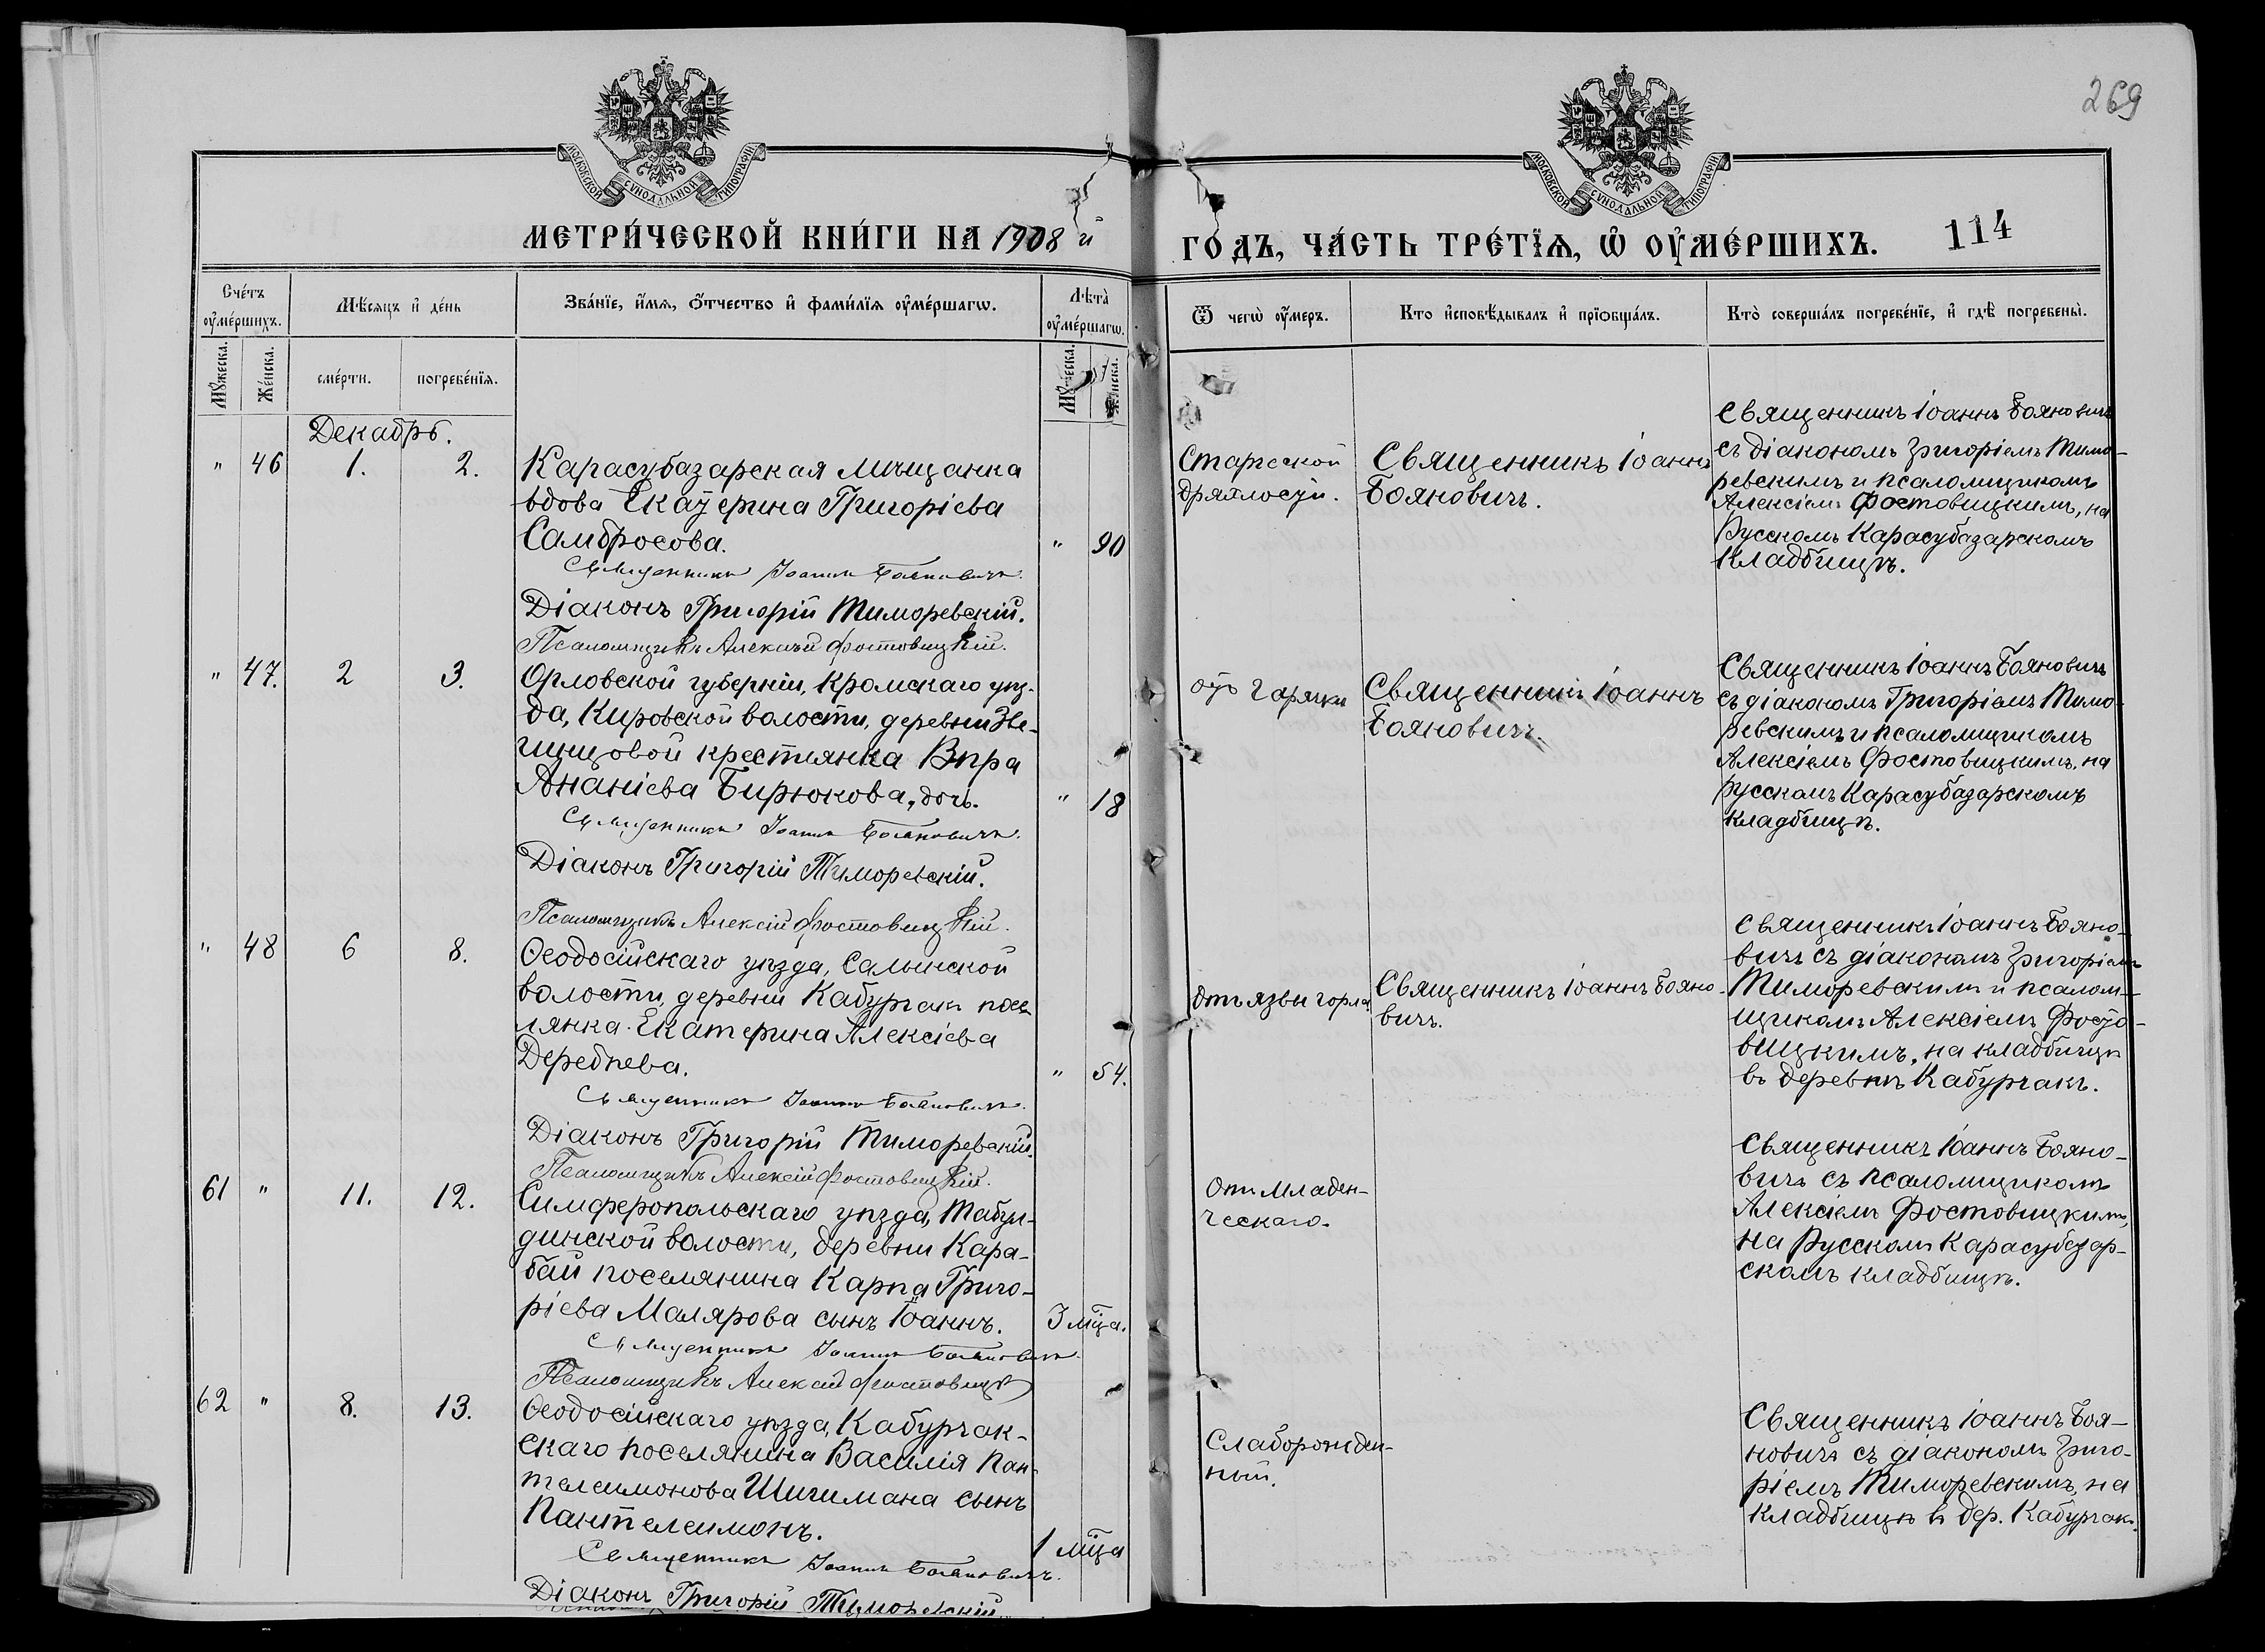 269
МОСКОВСКОЙ СѴНОДАЛЬНОЙ ТИПОГРАФІИ
МОСКОВСКОЙ СѴНОДАЛЬНОЙ ТИПОГРАФІИ
МЕТРИ́ЧЕСКОЙ КНИ́ГИ НА 1908 й
ГО́ДЪ, ЧА́СТЬ ТРЕ́ТЇѦ, Ѡ҆ ОУ҆МЕ́РШИХЪ.
114
Сче́тъ оу҆ме́ршихъ.
Мѣ́сѧцъ и҆ де́нь
Зва́нїе, и҆́мѧ, ѻ҆́тчество и҆ фами́лїѧ оу҆ме́ршагѡ.
Лѣ́та оу҆ме́ршагѡ.
Ѿ чегѡ̀ оу҆́меръ.
Кто̀ и҆сповѣ́дывалъ и҆ прїѡбща́лъ.
Кто̀ соверша́лъ погребе́нїе, и҆ гдѣ̀ погребены̀.
Мꙋ́жеска.
Же́нска.
сме́рти.
погребе́нїѧ.
Мꙋ́жеска.
Же́нска.
Декабрь.
" 46 1. 2.
Карасубазарская мѣщанка
вдова Екатерина Григоріева
Самбросова.
" 90
Священникъ Іоаннъ Бояновичъ.
Діаконъ Григорій Тиморевскій.
Псаломщикъ Алексѣй Фостовицкій.
Старческой
дряхлости.
Священникъ Іоаннъ
Бояновичъ.
Священникъ Іоаннъ Бояновичъ
съ діакономъ Григоріемъ Тимо-
ревскимъ и псаломщикомъ
Алексіемъ Фостовицкимъ, на
Русскомъ Карасубазарскомъ
кладбищѣ.
" 47. 2 3.
Орловской губерніи, Кромскаго уѣз-
да, Кировской волости, деревни Зве-
гинцовой крестьянка Вѣра
Ананіева Бирюкова, дочь.
" 18
Священникъ Іоаннъ Бояновичъ.
Діаконъ Григорій Тиморевскій.
Псаломщикъ Алексій Фостовицкій.
отъ горячки
Священникъ Іоаннъ
Бояновичъ.
Священникъ Іоаннъ Бояновичъ
съ діакономъ Григоріемъ Тимо-
ревскимъ и псаломщикомъ
Алексіемъ Фостовицкимъ, на
Русскомъ Карасубазарскомъ
кладбищѣ.
" 48 6 8.
Ѳеодосійскаго уѣзда, Салынской
волости, деревни Кабурчакъ посе-
лянка Екатерина Алексіева
" 54.
Священникъ Іоаннъ Бояновичъ.
Діаконъ Григорій Тиморевскій.
Псаломщикъ Алексій Фостовицкій.
отъ язвы горла.
Священникъ Іоаннъ Бояно-
вичъ.
Священникъ Іоаннъ Бояно-
вичъ съ діакономъ Григоріемъ
Тиморевскимъ и псалом-
щикомъ Алексіемъ Фосто-
вицкимъ, на кладбищѣ
въ деревнѣ Кабурчакъ.
61 " 11. 12.
Симферопольскаго уѣзда, Табул-
динской волости, деревни Кара-
бай поселянина Карпа Григо-
ріева Малярова сынъ Іоаннъ.
3 мц҃а.
Священникъ Іоаннъ Бояновичъ
Псаломщикъ Алексій Фостовицкій
Отъ младен-
ческаго.
Священникъ Іоаннъ Бояно-
вичъ съ псаломщикомъ
Алексіемъ Фостовицкимъ,
на Русскомъ Карасубазар-
скомъ кладбищѣ.
62 " 8. 13.
Ѳеодосійскаго уѣзда, Кабурчак-
скаго поселянина Василія Пан-
телеимонова Шигимана сынъ
Пантелеимонъ.
1 мц҃а
Священникъ Іоаннъ Бояновичъ.
Діаконъ Григорій Тиморевскій.
Слаборожден-
ный.
Священникъ Іоаннъ Боя-
новичъ съ діакономъ Григо-
ріемъ Тиморевскимъ, на
кладбищѣ въ дер. Кабурчакъ.